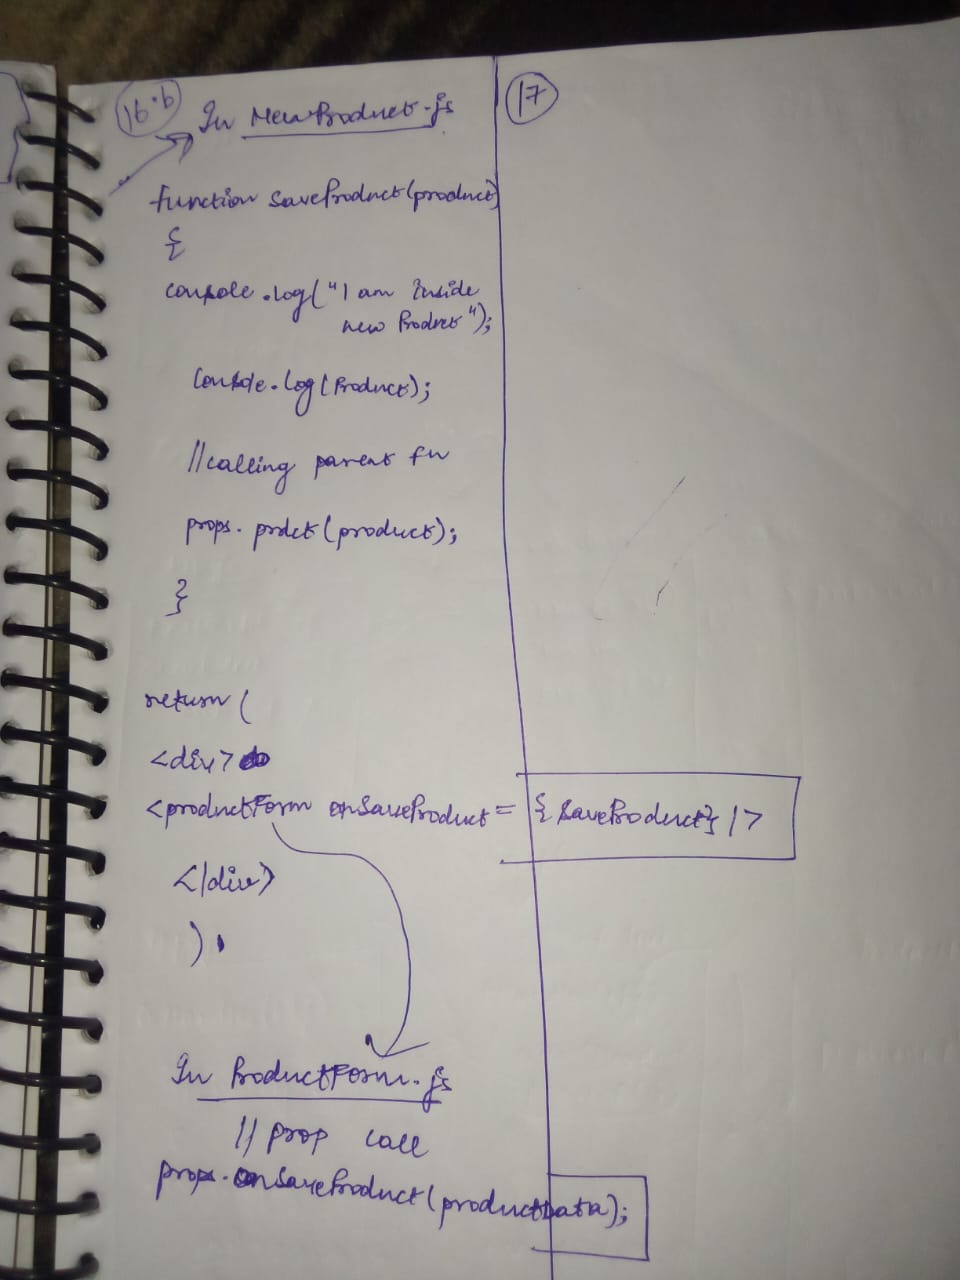 16.b
In NewProduct.js
17
function saveProduct(product)
{
console.log("I am inside
new Product");
Console.log(Product);
//calling parent fn
props. prdct(product);
}
return (
<div>
<productForm onSaveProduct = {SaveProduct} />
</div>
).
In ProductForm.js
// prop call
props.onSaveProduct(productData);